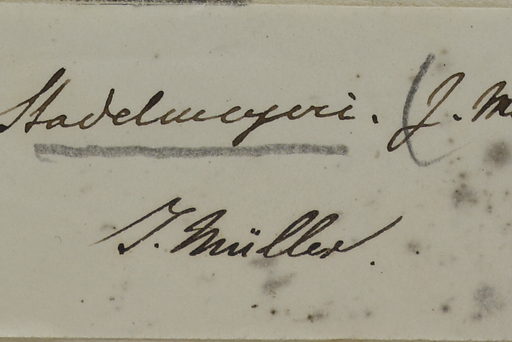 Stadelmeyeri. (J. M
J. Müller.